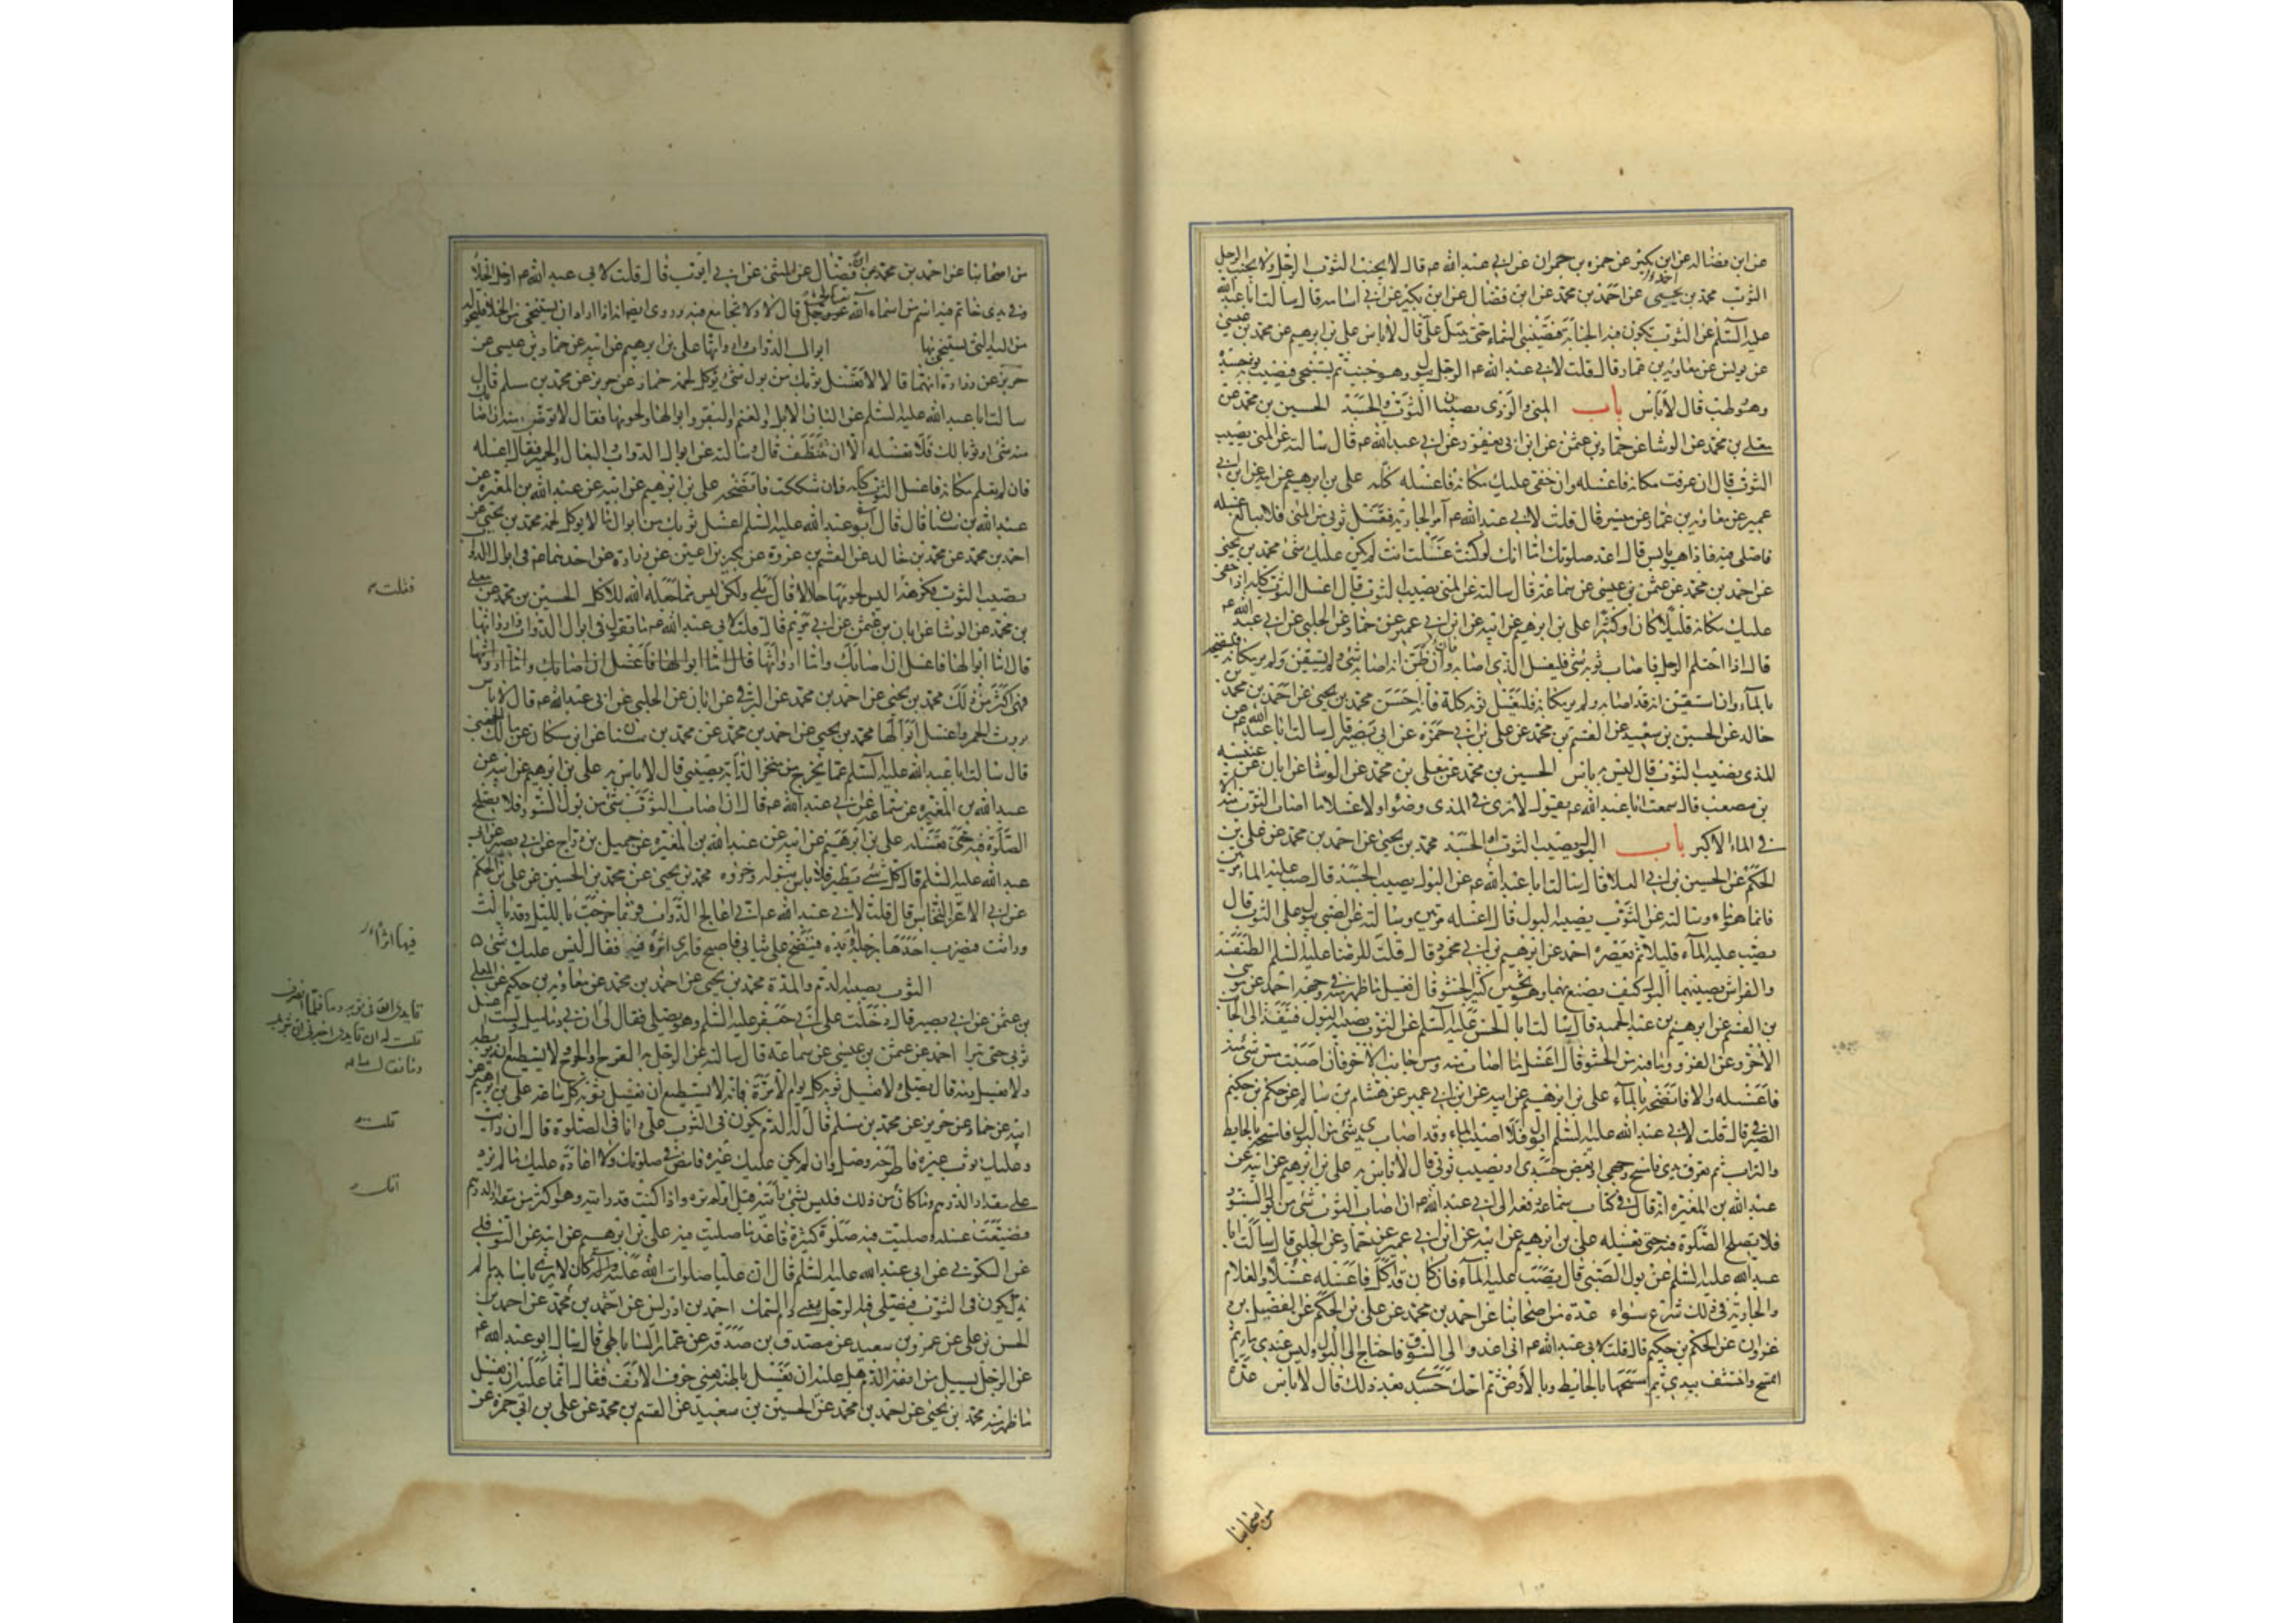 عن ابن فضال عن ابن بكير عن حمزه بن حمران عن ابي عبد الله عم قال لا يجنب الثوب الرجل ولا يجنب الرجل
الثوب محمد بن يحيى عن احمد بن محمد عن ابن فضال عن ابن بكير عن ابي اسامه قال سالت ابا عبد الله
عليه السلم عن الثوب تكون فيه الجنابة فتصيبني السماء حتى يبتل علي قال لا باس علي بن ابرهيم عن محمد بن عيسى
عن يونس عن معاوية بن عمار قال قلت لابي عبد الله عم الرجل يبول وهو جنب ثم يستنجي فيصيب ثوبه جسده
وهو رطب قال لا باس باب المني والمذي يصيبان الثوب والجسد الحسين بن محمد عن
معلى بن محمد عن الوشا عن حماد بن عثمن عن ابن ابي يعفور عن ابي عبد الله عم قال سالته عن المني يصيب
الثوب قال ان عرفت مكانه فاغسله وان خفي عليك مكانه فاغسله كله علي بن ابرهيم عن ابيه عن ابن ابي
عمير عن معاوية بن عمار عن ميسر قال قلت لابي عبد الله عم آمر الجارية فتغسل ثوبي من المني فلا تبالغ غسله
فاصلي فيه فاذا هو يابس قال اعد صلوتك اما انك لو كنت غسلت انت لم يكن عليك شئ محمد بن يحيى
عن احمد بن محمد عن عثمن بن عيسى عن سماعة قال سالته عن المني يصيب الثوب قال اغسل الثوب كله اذا خفي
عليك مكانه قليلا كان او كثيرا علي بن ابرهيم عن ابيه عن ابن ابي عمير عن حماد عن الحلبي عن ابي عبد الله عم
قال اذا احتلم الرجل فاصاب ثوبه شئ فليغسل الذي اصابه وان ظن انه اصابه شئ ولم يستيقن ولم ير مكانه فلينضحه
بالماء وان استيقن انه قد اصابه ولم ير مكانه فليغسل ثوبه كله فانه احسن محمد بن يحيى عن احمد بن محمد
خالد عن الحسين بن سعيد عن القسم بن محمد عن علي بن ابي حمزه عن ابي بصير قال سالت ابا عبد الله عم عن
المذي يصيب الثوب قال ليس به باس الحسين بن محمد عن معلى بن محمد عن الوشا عن ابان عن عنبسه
بن مصعب قال سمعت ابا عبد الله عم يقول لا نرى في المذي وضوا ولا غسلا ما اصاب الثوب منه الا
في الماء الاكبر باب البول يصيب الثوب او الجسد محمد بن يحيى عن احمد بن محمد عن علي بن
الحكم عن الحسين بن ابي العلا قال سالت ابا عبد الله عم عن البول يصيب الجسد قال صب عليه الماء مرتين
فانما هو ماء وسالته عن الثوب يصيبه البول قال اغسله مرتين وسالته عن الصبي يبول على الثوب قال
يصب عليه الماء قليلا ثم يعصره احمد عن ابرهيم بن ابي محمود قال قلت للرضا عليه السلم الطنفسة
والفراش يصيبهما البول كيف يصنع بهما وهو ثخين كثير الحشو قال يغسل ما ظهر منه في وجهه احمد عن موسى
بن القسم عن ابرهيم بن عبد الحميد قال سالت ابا الحسن عليه السلم عن الثوب يصيبه البول فينفذ الى الجانب
الآخر وعن الفرو وما فيه من الحشو قال اغسل ما اصاب منه ومس جانب الآخر فان اصبت مس شئ منه
فاغسله والا فانضحه بالماء علي بن ابرهيم عن ابيه عن ابن ابي عمير عن هشام بن سالم عن حكم بن حكيم
الصيرفي قال قلت لابي عبد الله عليه السلم ابول فلا اصيب الماء وقد اصاب يدي شئ من البول فامسحه بالحايط
والتراب ثم تعرق يدي فامسح وجهي او بعض جسدي او يصيب ثوبي قال لا باس به علي بن ابرهيم عن ابيه عن
عبد الله بن المغيره انه قال في كتاب سماعه رفعه الى ابي عبد الله عم ان اصاب الثوب شئ من بول السنور
فلا يصلح الصلوة فيه حتى تغسله علي بن ابرهيم عن ابيه عن ابن ابي عمير عن حماد عن الحلبي قال سالت ابا
عبد الله عليه السلم عن بول الصبي قال يصب عليه الماء فان كان قد اكل فاغسله غسلا والغلام
والجارية في ذلك شرع سواء عدة من اصحابنا عن احمد بن محمد عن علي بن الحكم عن الفضيل بن
غزوان عن الحكم بن حكيم قال قلت لابي عبد الله عم اني اغدو الى السوق فاحتاج الى البول وليس عندي ماء ثم
اتمسح واتنشف بيدي ثم امسحها بالحايط وبالارض ثم احك جسدي بعد ذلك قال لا باس عدة
من اصحابنا
من اصحابنا عن احمد بن محمد عن ابن فضال عن المثنى عن ابي ايوب قال قلت لابي عبد الله عم ادخل الخلا
وفي يدي خاتم فيه اسم من اسماء الله تعالى قال لا ولا تجامع فيه وروي ايضا انه اذا اراد ان يستنجي من الخلا فليحوله
من اليد التي يستنجي بها ابوال الدواب وارواثها علي بن ابرهيم عن ابيه عن حماد بن عيسى عن
حريز عن زرارة انهما قالا لا تغسل ثوبك من بول شئ يوكل لحمه حماد عن حريز عن محمد بن مسلم قال
سالت ابا عبد الله عليه السلم عن البان الابل والغنم والبقر وابوالها ولحومها فقال لا توضا منه ان اصابك
منه شئ او ثوبا لك فلا تغسله الا ان تتنظف قال وسالته عن ابوال الدواب والبغال والحمير فقال اغسله
فان لم تعلم مكانه فاغسل الثوب كله فان شككت فانضحه علي بن ابرهيم عن ابيه عن عبد الله بن المغيرة عن
عبد الله بن سنان قال قال ابو عبد الله عليه السلم اغسل ثوبك من ابوال ما لا يوكل لحمه محمد بن يحيى عن
احمد بن محمد عن محمد بن خالد عن القسم بن عروة عن بكير بن اعين عن زرارة عن احدهما عم في ابوال الدواب
يصيب الثوب فكرهه اليس لحومها حلالا قال بلى ولكن ليس مما جعله الله للاكل الحسين بن محمد عن معلى
بن محمد عن الوشا عن ابان بن عثمن عن ابي مريم قال قلت لابي عبد الله عم ما تقول في ابوال الدواب وارواثها
قال اما ابوالها فاغسل ان اصابك واما ارواثها قال اما ابوالها فاغسل ان اصابك واما ارواثها
فهي اكثر من ذلك محمد بن يحيى عن احمد بن محمد عن البرقي عن ابان عن الحلبي عن ابي عبد الله عم قال لا باس
بروث الحمر واغسل ابوالها محمد بن يحيى عن احمد بن محمد عن محمد بن سنان عن ابن مسكان عن مالك الجهني
قال سالت ابا عبد الله عليه السلم عما يخرج من منخر الدابة يصيبني قال لا باس به علي بن ابرهيم عن ابيه عن
عبد الله بن المغيره عن سماعه عن ابي عبد الله عم قال ان اصاب الثوب شئ من بول السنور فلا يصلح
الصلوة فيه حتى تغسله علي بن ابرهيم عن ابيه عن عبد الله بن المغيره عن جميل بن دراج عن ابي بصير عن ابي
عبد الله عليه السلم قال كل شئ يطير فلا باس ببوله وخرؤه محمد بن يحيى عن محمد بن الحسين عن علي بن الحكم
عن ابي الاعز النخاس قال قلت لابي عبد الله عم اني اعالج الدواب فربما خرجت بالليل وقد بالت
وراثت فيضرب احدها برجله او يده فينضح على ثيابي فاصبح فارى اثره فيه فقال ليس عليك شئ
الثوب يصيبه الدم والمدة محمد بن يحيى عن احمد بن محمد عن معاوية بن حكيم عن المعلى
بن عثمن عن ابي بصير قال دخلت على ابي جعفر عليه السلم وهو يصلي فقال لي ان بي دماميل ولست اغسل
ثوبي حتى تبرا احمد عن عثمن بن عيسى عن سماعة قال سالته عن الرجل به القرح والجروح لا يستطيع ان يربطه
ولا يغسل دمه قال يصلي ولا يغسل ثوبه كل يوم الا مرة فانه لا يستطيع ان يغسل ثوبه كل ساعة علي بن ابرهيم عن
ابيه عن حماد عن حريز عن محمد بن مسلم قال له الدم يكون في الثوب علي وانا في الصلوة قال ان رايت
وعليك ثوب غيره فاطرحه وصل وان لم يكن عليك غيره فامض في صلوتك ولا اعادة عليك ما لم يزد
على مقدار الدرهم وما كان من ذلك فليس بشئ رايته قبل او لم تره واذا كنت قد رايته وهو اكثر من مقدار الدرهم
فضيعت غسله وصليت فيه صلوة كثيرة فاعد ما صليت فيه علي بن ابرهيم عن ابيه عن النوفلي
عن السكوني عن ابي عبد الله عليه السلم قال ان عليا صلوات الله عليه وآله كان لا يرى باسا بدم ما لم
يذك يكون في الثوب فيصلي فيه الرجل يعني دم السمك احمد بن ادريس عن احمد بن محمد عن احمد بن
الحسن بن علي عن عمرو بن سعيد عن مصدق بن صدقه عن عمار الساباطي قال سال ابو عبد الله عم
عن الرجل يسيل من انفه الدم هل عليه ان يغسل باطنه يعني جوف الانف فقال انما عليه ان يغسل
ما ظهر منه محمد بن يحيى عن احمد بن محمد عن الحسين بن سعيد عن القسم بن محمد عن علي بن ابي حمزه عن
فقلت
فيها
قايدي ان في ثوبه دما فلما انصرف
قلت له ان قايدي اخبرني ان بثوبك
دما فقال
قلت